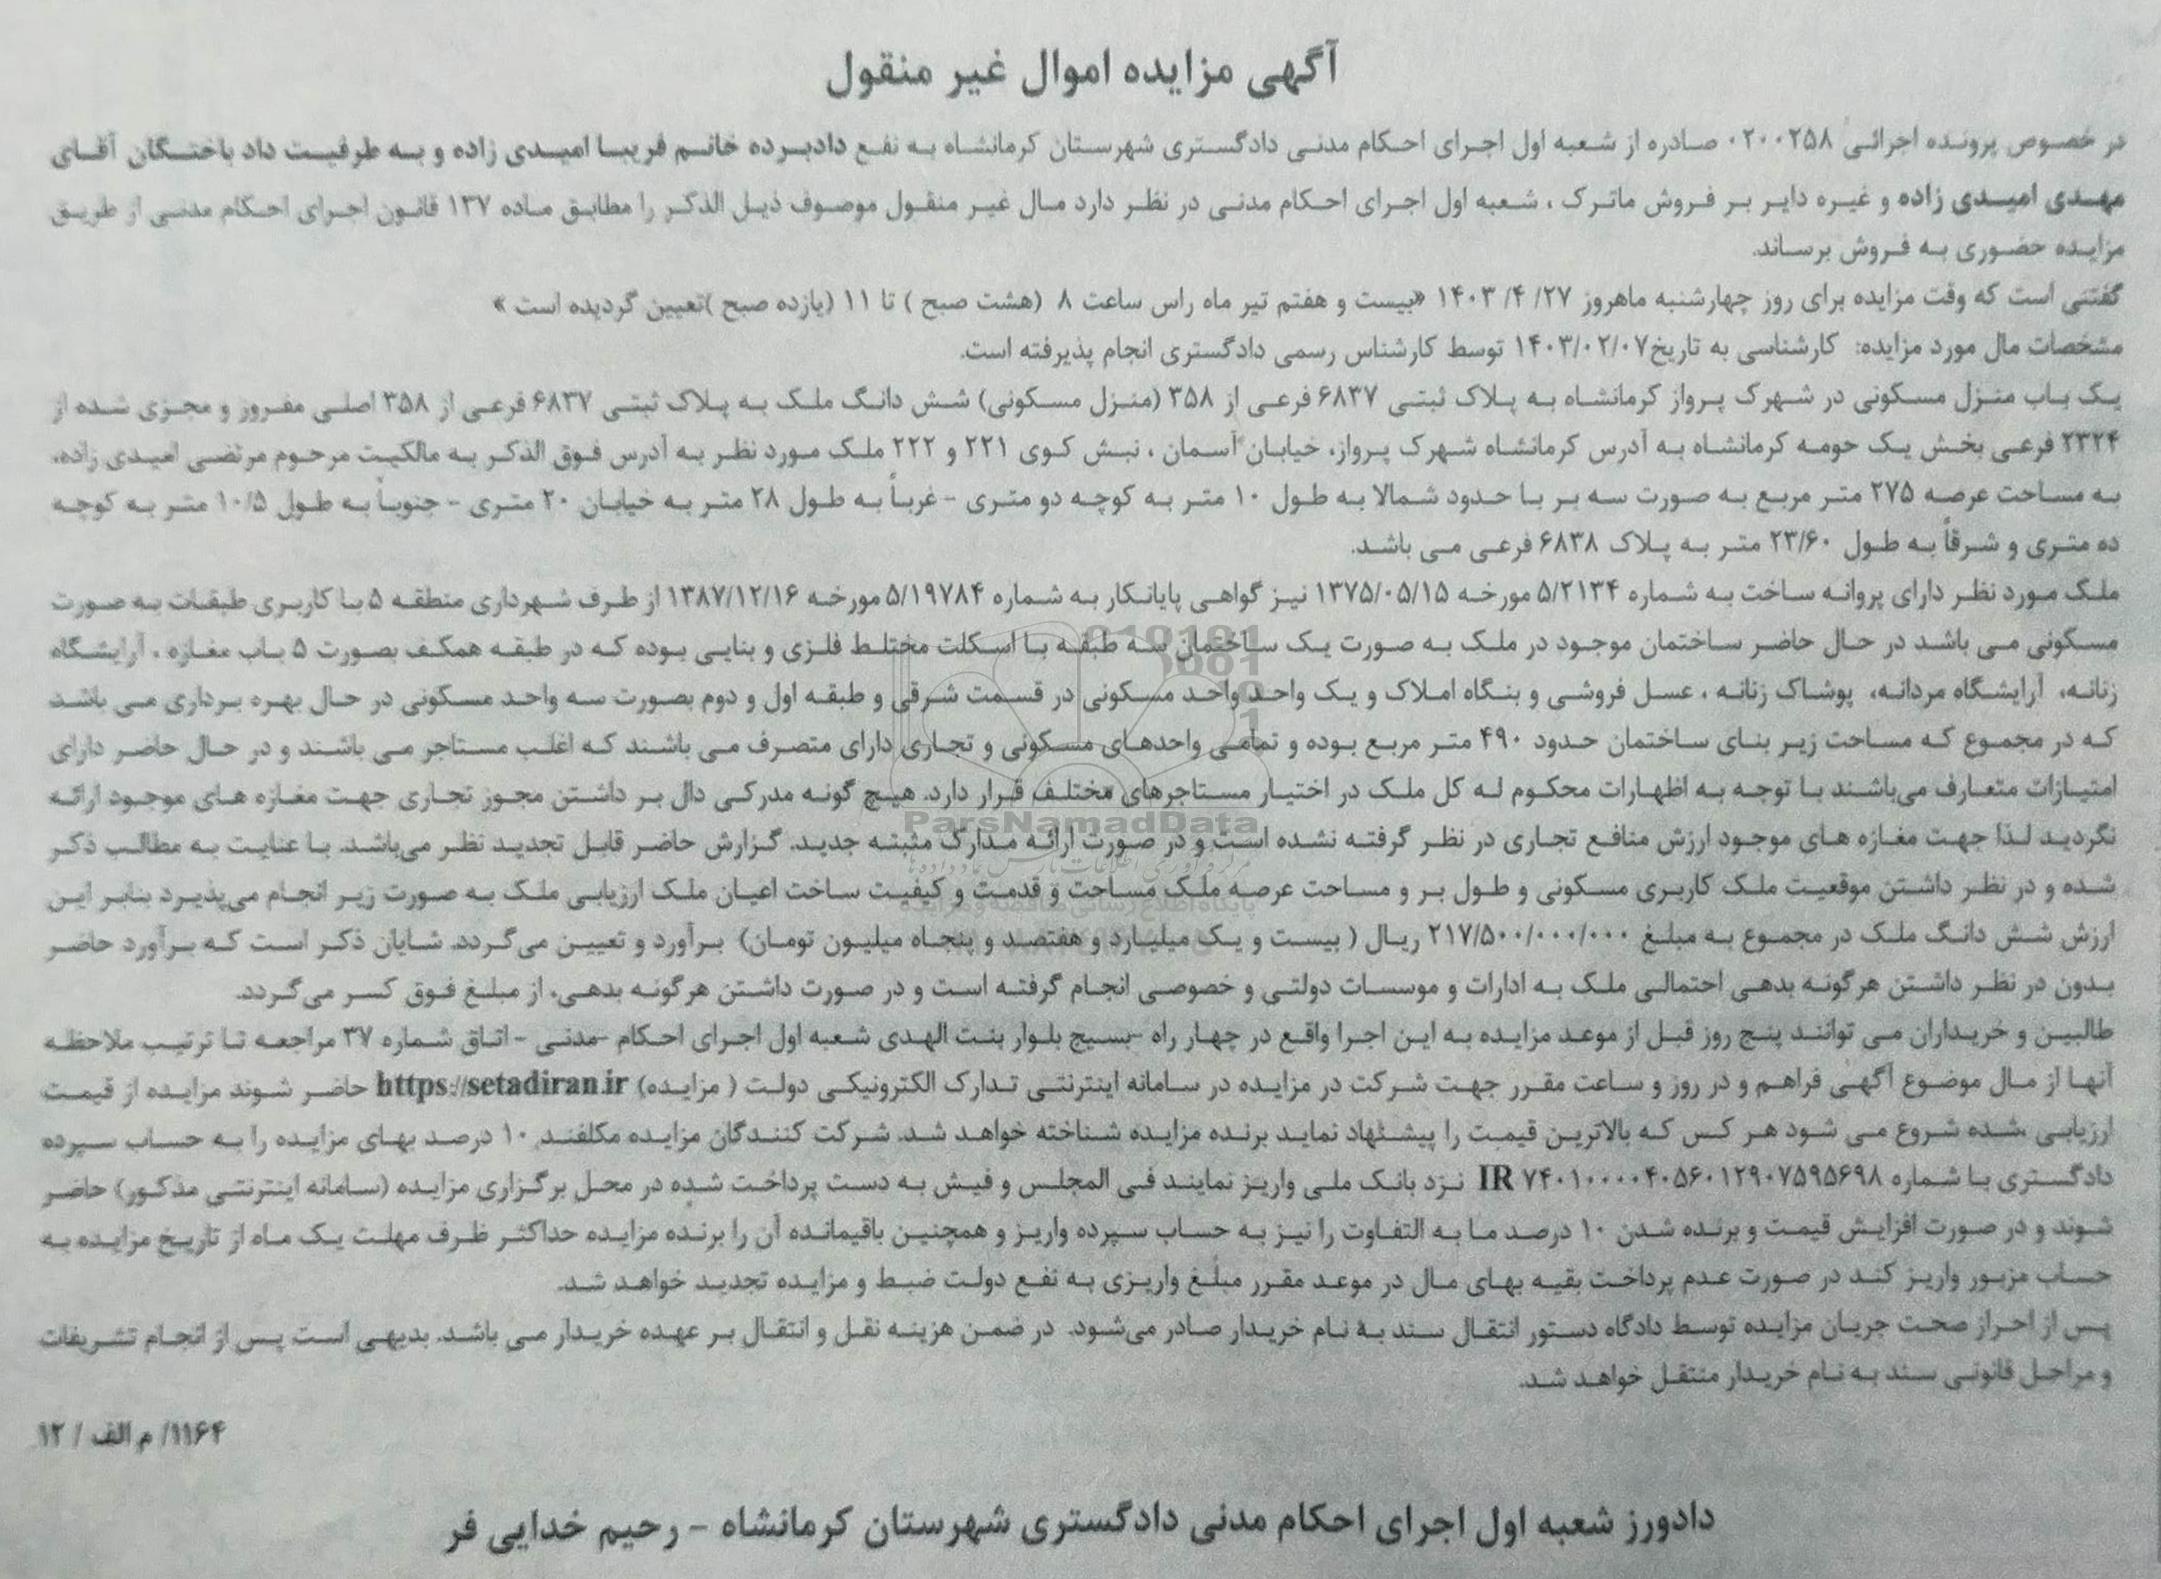 آگهی مزایده اموال غیر منقول
در خصوص پرونده اجرائی ۰۲۰۰۲۵۸ صادره از شعبه اول اجرای احکام مدنی دادگستری شهرستان کرمانشاه به نفع دادبرده خانم فریبا امیدی زاده و به طرفیت داد باختگان آقای
مهدی امیدی زاده و غیره دایر بر فروش ماترک ، شعبه اول اجرای احکام مدنی در نظر دارد مال غیر منقول موصوف ذیل الذکر را مطابق ماده ۱۳۷ قانون اجرای احکام مدنی از طریق
مزایده حضوری به فروش برساند.
گفتنی است که وقت مزایده برای روز چهارشنبه ماهروز ۲۷/ ۴/ ۱۴۰۳ «بیست و هفتم تیر ماه راس ساعت ۸ (هشت صبح ) تا ۱۱ (یازده صبح )تعیین گردیده است »
مشخصات مال مورد مزایده: کارشناسی به تاریخ۱۴۰۳/۰۲/۰۷ توسط کارشناس رسمی دادگستری انجام پذیرفته است.
یک باب منزل مسکونی در شهرک پرواز کرمانشاه به پلاک ثبتی ۶۸۳۷ فرعی از ۳۵۸ (منزل مسکونی) شش دانگ ملک به پلاک ثبتی ۶۸۳۷ فرعی از ۳۵۸ اصلی مفروز و مجزی شده از
۲۳۲۴ فرعی بخش یک حومه کرمانشاه به آدرس کرمانشاه شهرک پرواز، خیابان آسمان ، نبش کوی ۲۲۱ و ۲۲۲ ملک مورد نظر به آدرس فوق الذکر به مالکیت مرحوم مرتضی امیدی زاده،
به مساحت عرصه ۲۷۵ متر مربع به صورت سه بر با حدود شمالا به طول ۱۰ متر به کوچه دو متری - غرباً به طول ۲۸ متر به خیابان ۲۰ متری - جنوباً به طول ۱۰/۵ متر به کوچه
ده متری و شرقاً به طول ۲۳/۶۰ متر به پلاک ۶۸۳۸ فرعی می باشد.
ملک مورد نظر دارای پروانه ساخت به شماره ۵/۲۱۳۴ مورخه ۱۳۷۵/۰۵/۱۵ نیز گواهی پایانکار به شماره ۵/۱۹۷۸۴ مورخه ۱۳۸۷/۱۲/۱۶ از طرف شهرداری منطقه ۵ با کاربری طبقات به صورت
مسکونی می باشد در حال حاضر ساختمان موجود در ملک به صورت یک ساختمان سه طبقه با اسکلت مختلط فلزی و بنایی بوده که در طبقه همکف بصورت ۵ باب مغازه ، آرایشگاه
زنانه، آرایشگاه مردانه، پوشاک زنانه ، عسل فروشی و بنگاه املاک و یک واحد واحد مسکونی در قسمت شرقی و طبقه اول و دوم بصورت سه واحد مسکونی در حال بهره برداری می باشد
که در مجموع که مساحت زیر بنای ساختمان حدود ۴۹۰ متر مربع بوده و تمامی واحدهای مسکونی و تجاری دارای متصرف می باشند که اغلب مستاجر می باشند و در حال حاضر دارای
امتیازات متعارف می‌باشند با توجه به اظهارات محکوم له کل ملک در اختیار مستاجرهای مختلف قرار دارد. هیچ گونه مدرکی دال بر داشتن مجوز تجاری جهت مغازه های موجود ارائه
نگردید لذا جهت مغازه های موجود ارزش منافع تجاری در نظر گرفته نشده است و در صورت ارائه مدارک مثبته جدید. گزارش حاضر قابل تجدید نظر می‌باشد. با عنایت به مطالب ذکر
شده و در نظر داشتن موقعیت ملک کاربری مسکونی و طول بر و مساحت عرصه ملک مساحت و قدمت و کیفیت ساخت اعیان ملک ارزیابی ملک به صورت زیر انجام می‌پذیرد بنابر این
ارزش شش دانگ ملک در مجموع به مبلغ ۲۱۷/۵۰۰/۰۰۰/۰۰۰ ریال ( بیست و یک میلیارد و هفتصد و پنجاه میلیون تومان) برآورد و تعیین می‌گردد. شایان ذکر است که برآورد حاضر
بدون در نظر داشتن هرگونه بدهی احتمالی ملک به ادارات و موسسات دولتی و خصوصی انجام گرفته است و در صورت داشتن هرگونه بدهی، از مبلغ فوق کسر می‌گردد.
طالبین و خریداران می توانند پنج روز قبل از موعد مزایده به این اجرا واقع در چهار راه -بسیج بلوار بنت الهدی شعبه اول اجرای احکام -مدنی - اتاق شماره ۳۷ مراجعه تا ترتیب ملاحظه
آنها از مال موضوع آگهی فراهم و در روز و ساعت مقرر جهت شرکت در مزایده در سامانه اینترنتی تدارک الکترونیکی دولت ( مزایده) https://setadiran.ir حاضر شوند مزایده از قیمت
ارزیابی ،شده شروع می شود هر کس که بالاترین قیمت را پیشنهاد نماید برنده مزایده شناخته خواهد شد. شرکت کنندگان مزایده مکلفند ۱۰ درصد بهای مزایده را به حساب سپرده
دادگستری با شماره IR ۷۴۰۱۰۰۰۰۴۰۵۶۰۱۲۹۰۷۵۹۵۶۹۸ نزد بانک ملی واریز نمایند فی المجلس و فیش به دست پرداخت شده در محل برگزاری مزایده (سامانه اینترنتی مذکور) حاضر
شوند و در صورت افزایش قیمت و برنده شدن ۱۰ درصد ما به التفاوت را نیز به حساب سپرده واریز و همچنین باقیمانده آن را برنده مزایده حداکثر ظرف مهلت یک ماه از تاریخ مزایده به
حساب مزبور واریز کند در صورت عدم پرداخت بقیه بهای مال در موعد مقرر مبلغ واریزی به نفع دولت ضبط و مزایده تجدید خواهد شد.
پس از احراز صحت جریان مزایده توسط دادگاه دستور انتقال سند به نام خریدار صادر می‌شود. در ضمن هزینه نقل و انتقال بر عهده خریدار می باشد. بدیهی است پس از انجام تشریفات
و مراحل قانونی سند به نام خریدار منتقل خواهد شد.
۱۱۶۴/ م الف / ۱۲
دادورز شعبه اول اجرای احکام مدنی دادگستری شهرستان کرمانشاه - رحیم خدایی فر
ParsNamadData